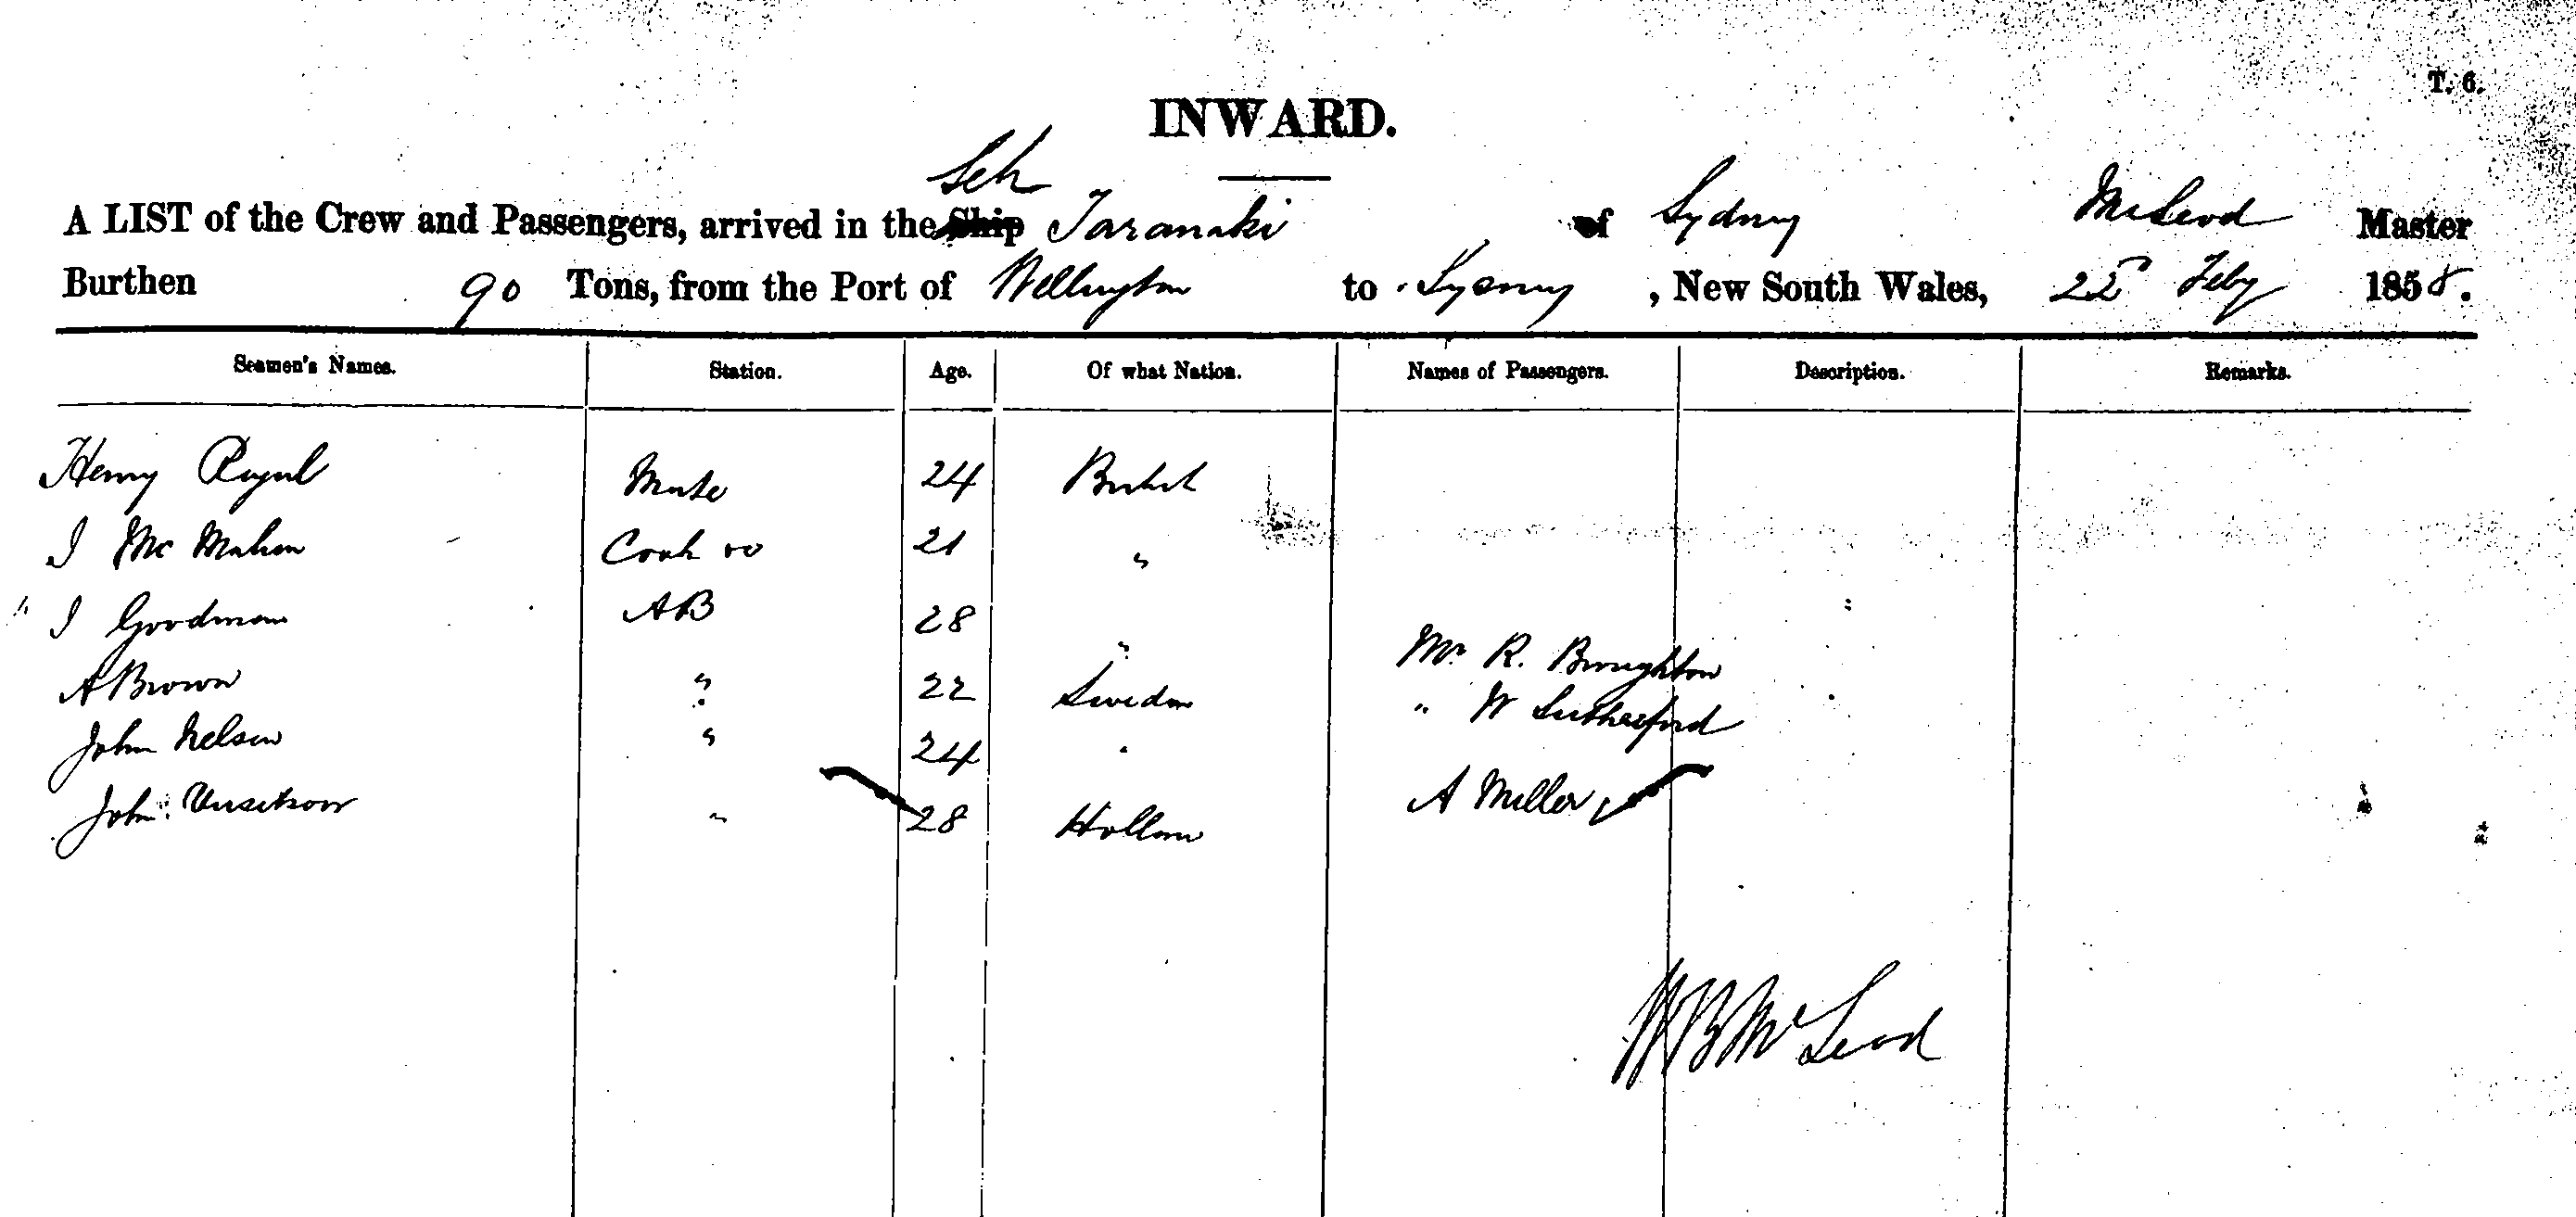 T. 6.
INWARD.
Sch
A LIST of the Crew and Passengers, arrived in the Ship Taranaki of Sydney McLeod Master
Burthen 90 Tons, from the Port of Wellington to Sydney, New South Wales, 22 Feby 1858.
Seamen's Names. Station. Age. Of what Nation. Names of Passengers. Description. Remarks.
Henry Mate 24 British
J McMahon Cook 21 "
J Goodman AB 28 "
A Brown " 22 Sweden Mr. R. Broughton
John Nelson " 24 " " W Sutherford
John " 28 Hollan A Miller
W B McLeod